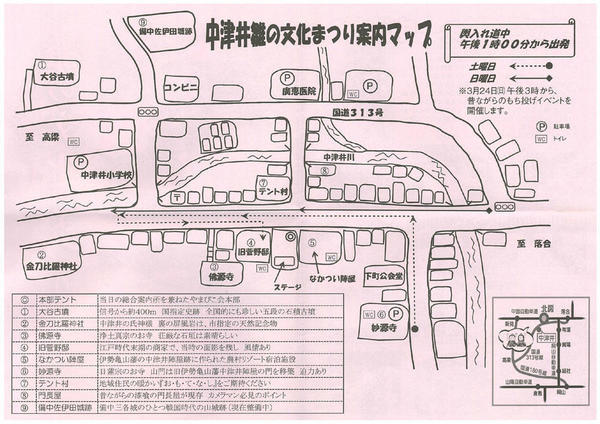 中津井雛の文化まつり案内マップ
輿入れ道中
午後1時00分から出発
土曜日
日曜日
※3月24日(日)午後3時から、
昔ながらのもち投げイベントを
開催します。
P 駐車場
WC トイレ
⑨
備中佐伊田城跡
①
大谷古墳
WC
コンビニ
P
廣恵医院
P
WC
国道313号
至 高梁
WC
P
中津井小学校
〒
中津井川
⑦
テント村
⑧
至 落合
②
金刀比羅神社
③
佛源寺
④
旧菅野邸
WC
◎
ステージ
⑤
WC
なかつい陣屋
下町公会堂
WC
⑥
P
妙源寺
◎ 本部テント 当日の総合案内所を兼ねたやまびこ会本部
① 大谷古墳 信号から約400m 国指定史跡 全国的にも珍しい五段の石積古墳
② 金刀比羅神社 中津井の氏神様 裏の屏風岩は、市指定の天然記念物
③ 佛源寺 浄土真宗のお寺 荘厳な石垣は素晴らしい
④ 旧菅野邸 江戸時代末期の商家で、当時の面影を残し 風情あり
⑤ なかつい陣屋 伊勢亀山藩の中津井陣屋跡に作られた農村リゾート宿泊施設
⑥ 妙源寺 日蓮宗のお寺 山門は旧伊勢亀山藩中津井陣屋の門を移築 迫力あり
⑦ テント村 地域住民の暖かい『お・も・て・な・し』をご期待ください
⑧ 門長屋 昔ながらの漆喰の門長屋が現存 カメラマン必見のポイント
⑨ 備中佐伊田城跡 備中三各城のひとつ戦国時代の山城跡(現在整備中)
北図
中国自動車道
新見
中津井
高梁
国道313号線
国道180号線
岡山自動車道
山陽自動車道
岡山